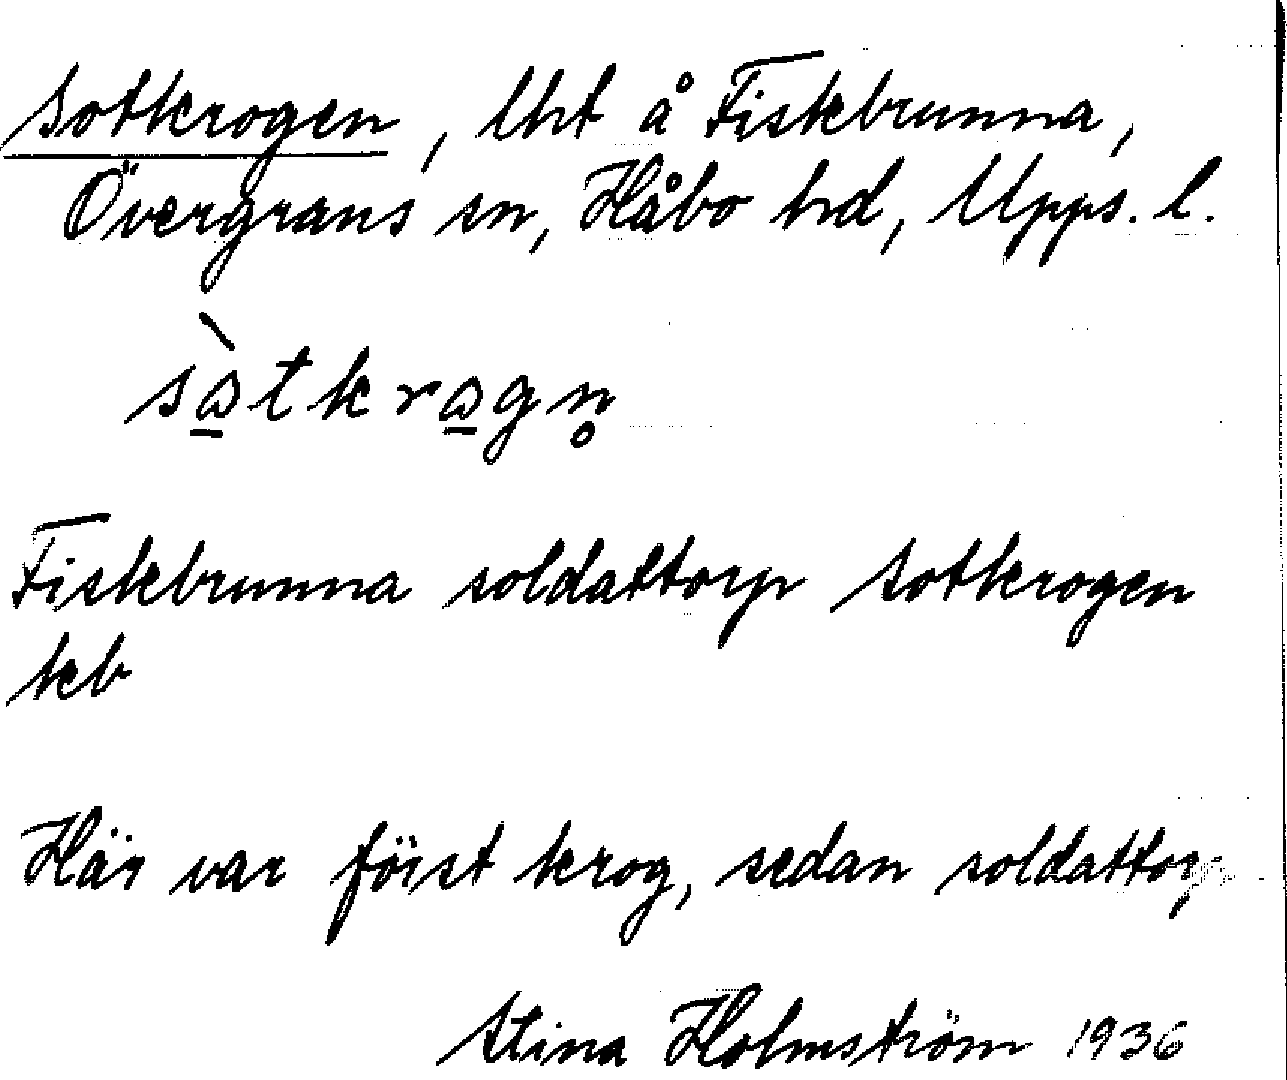 Sotkrogen, lht å Fiskebrunna,
Övergrans sn, Håbo hd, Upps. l.
sὰtkrag̱n̥
Fiskebrunna soldattorp Sotkrogen
kb
Här var först krog, sedan soldattorp
Stina Holmström 1936